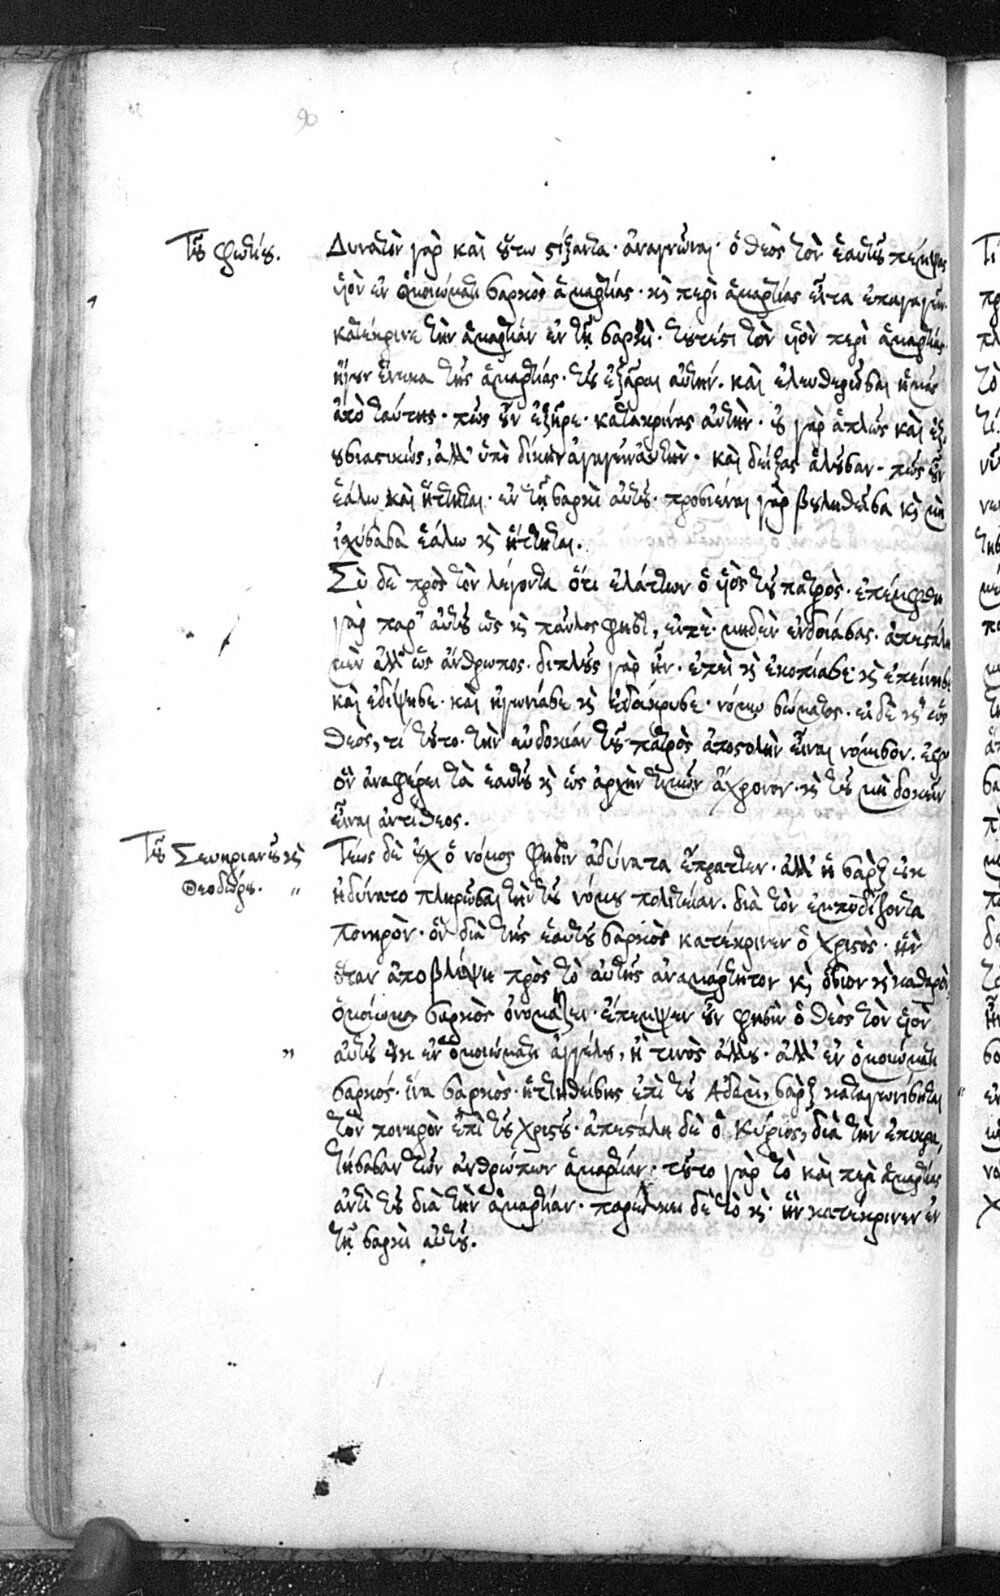 Τοῦ φωτίου. Δυνατὸν γὰρ καὶ οὕτω στίξαντα· ἀναγνῶναι· ὁ θεὸς τὸν ἑαυτοῦ πέμψας
υἱὸν ἐν ὁμοιώματι σαρκὸς ἁμαρτίας· καὶ περὶ ἁμαρτίας εἶτα ἐπαγαγεῖν·
κατέκρινε τὴν ἁμαρτίαν ἐν τῇ σαρκὶ· τουτέστι τὸν υἱὸν περὶ ἁμαρτίας
ἤγουν ἕνεκα τῆς ἁμαρτίας· τοῦ ἐξᾶραι αὐτήν· καὶ ἐλευθερῶσαι ἡμᾶς
ἀπὸ ταύτης· πῶς οὖν ἐξῆρε· κατακρίνας αὐτὴν· οὐ γὰρ ἁπλῶς καὶ ἐξ
ουσιαστικῶς, ἀλλ' ὑπὸ δίκην ἀγαγὼν αὐτὴν· καὶ δείξας ἁλοῦσαν· πῶς οὖν
ἑάλω καὶ ἥττηται· ἐν τῇ σαρκὶ αὐτοῦ· προσιέναι γὰρ βουληθεῖσα καὶ μὴ
ἰσχύσασα ἑάλω καὶ ἥττηται.
Σὺ δὲ πρὸς τὸν λέγοντα ὅτι ἐλάττων ὁ υἱὸς τοῦ πατρὸς· ἐπέμφθη
γὰρ παρ' αὐτοῦ ὡς καὶ παῦλος φησὶ, εἰπὲ· μηδὲν ἐνδοιάσας· ἀπεστάλη
μὲν ἀλλ' ὡς ἄνθρωπος· διπλοῦς γὰρ ἦν· ἐπεὶ καὶ ἐκοπίασε καὶ ἐπείνησε
καὶ ἐδίψησε· καὶ ἠγωνίασε καὶ ἐδάκρυσε· νόμῳ σώματος· εἰ δὲ καὶ ὡς
θεὸς, τί τοῦτο· τὴν εὐδοκίαν τοῦ πατρὸς ἀποστολὴν εἶναι νόμισον· ἐφ'
ὃν ἀναφέρει τὰ ἑαυτοῦ καὶ ὡς ἀρχὴν τιμῶν ἄχρονον· καὶ τοῦ μὴ δοκεῖν
εἶναι ἀντίθεος.
Τοῦ Σευηριανοῦ καὶ Τέως δὲ οὐχ ὁ νόμος φησὶν ἀδύνατα ἔπραττεν· ἀλλ' ἡ σὰρξ οὐκ
Θεοδώρου. ἠδύνατο πληρῶσαι τὴν τοῦ νόμου πολιτείαν· διὰ τὸν ἐμποδίζοντα
πονηρὸν· ὃν διὰ τῆς ἑαυτοῦ σαρκὸς κατέκρινεν ὁ χριστὸς· ἣν
ὅταν ἀποβλέψῃ πρὸς τὸ αὐτῆς ἀναμάρτητον καὶ ὅσιον καὶ καθαρὸν,
ὁμοίωμα σαρκὸς ὀνομάζει· ἔπεμψεν οὖν φησὶν ὁ θεὸς τὸν υἱὸν
αὐτοῦ οὐκ ἐν ὁμοιώματι ἀγγέλου, ἤ τινος ἄλλου· ἀλλ' ἐν ὁμοιώματι
σαρκός· ἵνα σαρκὸς· ἡττηθείσης ἐπὶ τοῦ Ἀδάμ, σὰρξ καταγωνίσηται
τὸν πονηρὸν ἐπὶ τοῦ χριστοῦ· ἀπεστάλη δὲ ὁ Κύριος, διὰ τὴν ἐπικρα
τήσασαν τῶν ἀνθρώπων ἁμαρτίαν· τοῦτο γὰρ τὸ καὶ περὶ ἁμαρτίας
ἀντὶ τοῦ διὰ τὴν ἁμαρτίαν· παρέλκει δὲ τὸ καὶ· ἣν κατέκρινεν ἐν
τῇ σαρκὶ αὐτοῦ.